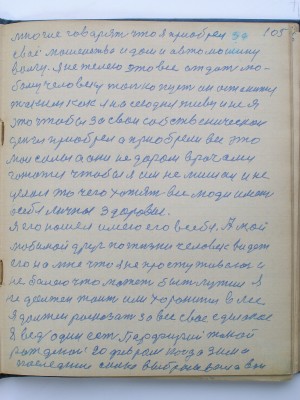 многие говорят што я приобрел за 105
своё мошенство и дом и автомошину
волгу. Я не жалею это все отдать лю-
бому человеку только пусть он останится
таким как я на сегодня живу и не я
это чтобы за свои собственически
денги приобрел а приобрели все это
мои сыновя они не даром врачами
чтобы я им не мишал и не
делал то чего хотят все люди имет
себя личная Здоровье.
Я его нашел имею его в себя. А мой
любимой друг по жизни человек видет
его на мне что я не простуживаюсь и
не болею что может быть лутши Я
не должен таит или хоронится в лес
я должен розказат за все свое сделаное
Я ведь один ест. Парфирий такой
рожденой 20 февраля когда зима
последнии силы выброшовала вон